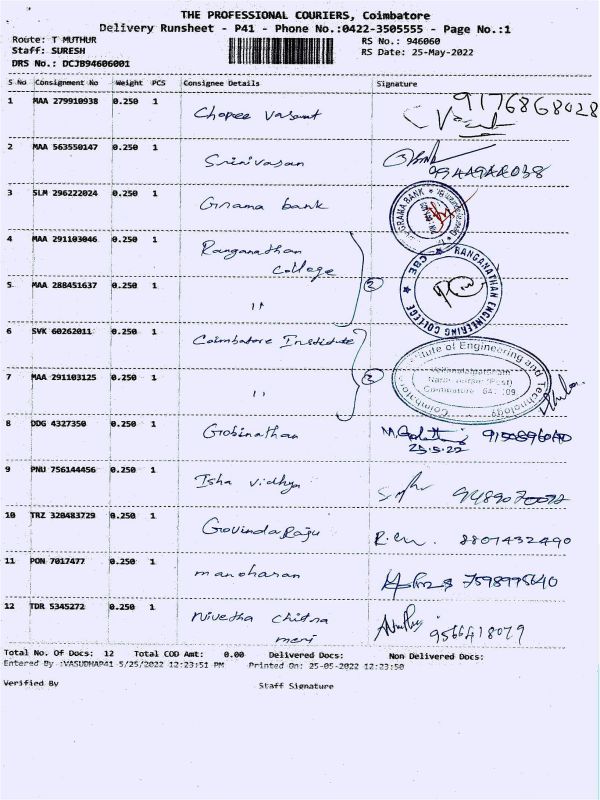 THE PROFESSIONAL COURIERS, Coimbatore
Delivery Runsheet - P41 - Phone No.:0422-3505555 - Page No.:1
Route: T MUTHUR
RS No.: 946060
Staff: SURESH
RS Date: 25-May-2022
DRS No.: DCJB94606001
S No Consignment No Weight PCS Consignee Details Signature
1 MAA 279910938 0.250 1 Chopee Vasant 9176868028
2 MAA 563550147 0.250 1 Srinivasan
3 SLM 296222024 0.250 1 Grama bank
GRAMA BANK
4 MAA 291103046 0.250 1 Ranganathan
College
RANGANATHAN ENGINEERING COLLEGE CBE
5 MAA 288451637 0.250 1 "
2
6 SVK 60262011 0.250 1 Coimbatore Institute
Institute of Engineering and Technology Coimbatore
7 MAA 291103125 0.250 1 "
8 DDG 4327350 0.250 1 Gobinathan
25.5.22
9 PNU 756144456 0.250 1 Isha vidhya
10 TRZ 320483729 0.250 1 GovindaRaju 8807432490
11 PON 7017477 0.250 1 manoharan 7598995640
12 TDR 5345272 0.250 1 Nivetha Chitra 9566418079
meri
Total No. Of Docs: 12 Total COD Amt: 0.00 Delivered Docs: Non Delivered Docs:
Entered By :VASUDHAP41-5/25/2022 12:23:51 PM Printed On: 25-05-2022 12:23:50
Verified By Staff Signature